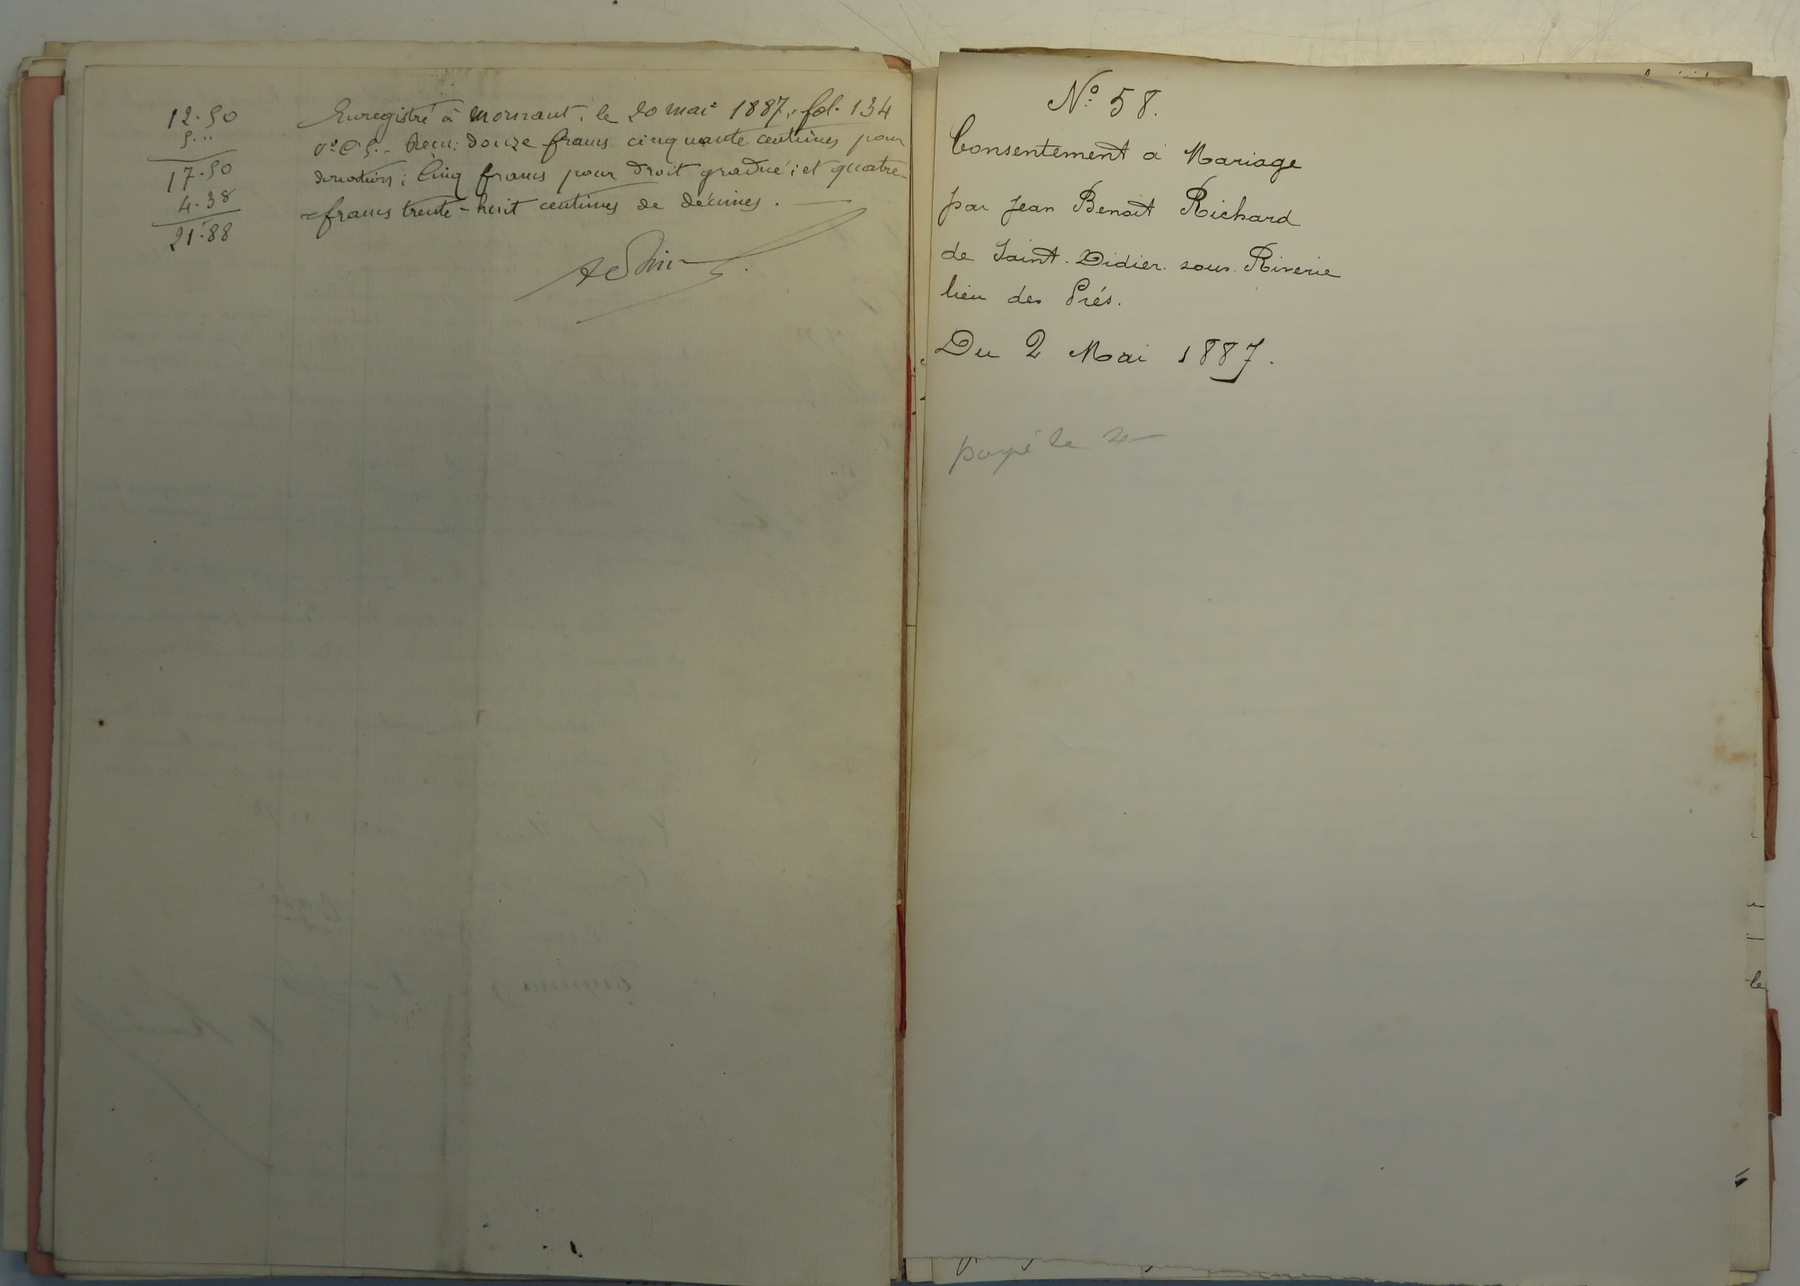 12.50
5..
17.50
4.38
21.88
Enregistré à Mornant, le 20 mai 1887, fol. 134
v° C 5.. Reçu: douze francs cinquante centimes pour
donation; Cinq francs pour droit gradué; et quatre
francs trente-huit centimes de décimes.
N° 58.
Consentement à Mariage
par Jean Benoit Richard
de Saint. Didier. sous. Riverie
lieu des Prés.
Du 2 Mai 1887.
payé le